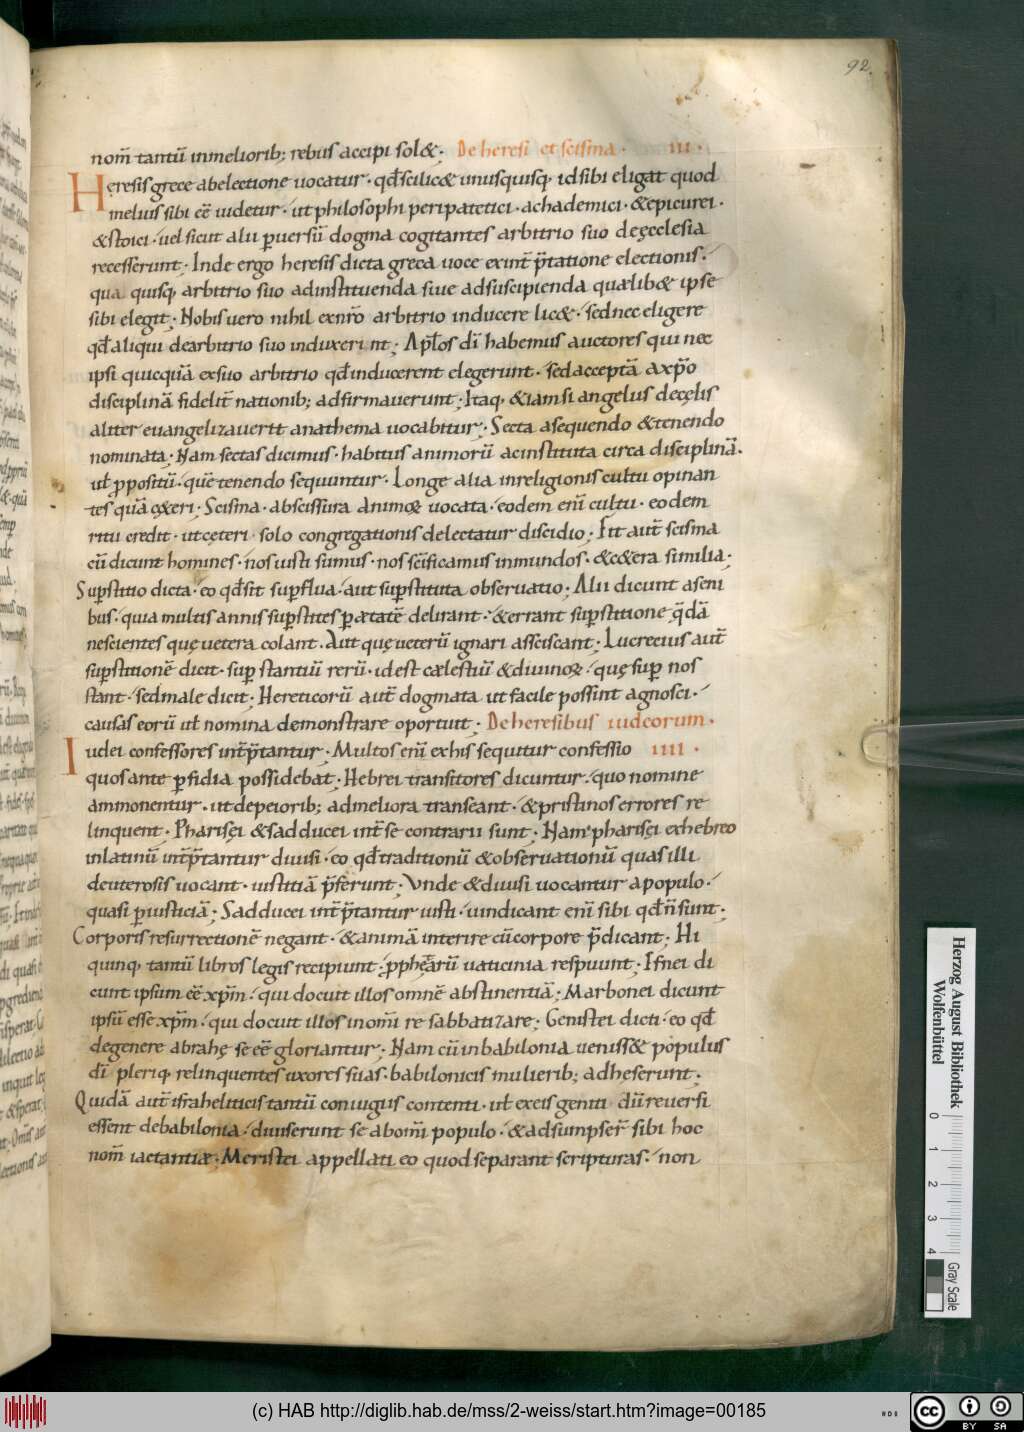 92.
nom̄ tantū inmeliorib; rebus accipi sol&; De heresi et scisma · III ·
Heresis grece abelectione uocatur · qđ scilic& unusquisq· id sibi eligat quod
melius sibi eē uidetur · ut philosophi peripatetici · achademici · & epicurei ·
& stoici · uel sicut alii ꝑuersū dogma cogitantes arbitrio suo deęcclesia
recesserunt; Inde ergo heresis dicta greca uoce exint̄ p̄tatione electionis ·
qua quisq· arbitrio suo adinstituenda siue adsuscipienda quælib& ipse
sibi elegit; Nobis uero nihil exnr̄o arbitrio inducere lic& · sed nec eligere
qđ aliqui dearbitrio suo induxerint; Apłos dī habemus auctores qui nec
ipsi quicquā exsuo arbitrio qđ inducerent elegerunt · sed acceptā axp̄o
disciplinā fidelit̄ nationib; adfirmauerunt; Itaq· & iamsi angelus decęlis
aliter euangelizauerit anathema uocabitur; Secta asequendo & tenendo
nominata; Nam sectas dicimus · habitus animorū acinstituta circa disciplinā ·
uł ꝓpositū · quē tenendo sequuntur · Longe alia inreligionis cultu opinan
tes quā c&eri; Scisma · abscissura animoꝝ uocata · eodem enī cultu · eodem
ritu credit · ut cęteri · solo congregationis delectatur discidio; Fit aut̄ scisma
cū dicunt homines · nos iusti sumus · nos sc̄ificamus inmundos · & c&era similia ·
Suꝑstitio dicta · eo qđ sit suꝑflua · aut suꝑstituta obseruatio; Alii dicunt aseni
bus · quia multis annis suꝑstites ꝑ ætatē delirant · & errant suꝑstitione q̄dā
nescientes quę uetera colant · Aut quę ueterū ignari assciscant; Lucrecius aut̄
suꝑstitionē dicit · suꝑ stantiū rerū · idest cælestiū & diuinoꝝ · quę suꝑ nos
stant · sed male dicit · Hereticorū aut̄ dogmata ut facile possint agnosci ·
causas eorū uł nomina demonstrare oportuit; De heresibus iudeorum ·
Iudei confessores int̄p̄tantur; Multos enī exhis sequitur confessio IIII ·
quos ante ꝑfidia possidebat; Hebrei transitores dicuntur · quo nomine
ammonentur · ut depeiorib; admeliora transeant · & pristinos errores re
linquent · Pharisęi & sadducei int̄ se contrarii sunt; Nam pharisęi exhebreo
inlatinū int̄p̄tantur diuisi · eo qđ traditionū & obseruationū quas illi
deuterosis uocant · iustitiā p̄ferunt; Vnde & diuisi uocantur apopulo ·
quasi ꝑ iusticiā; Sadducei int̄p̄tantur iusti · uindicant enī sibi qđ n̄ sunt;
Corporis resurrectionē negant · & animā interire cū corpore p̄dicant; Hi
quinq· tantū libros legis recipiunt; ꝓph&arū uaticinia respuunt; Isnei di
cunt ipsum eē xp̄m · qui docuit illos omnē abstinentiā; Marbonei dicunt
ipsū esse xp̄m · qui docuit illos inom̄i re sabbatizare; Genistei dicti · eo qđ
degenere abrahę se eē gloriantur; Nam cū inbabilonia ueniss& populus
dī pleriq· relinquentes uxores suas · babilonicis mulierib; adheserunt ·
Quidā aut̄ israheliticis tantū coniugiis contenti · uł exeis geniti dū reuersi
essent debabilonia · diuiserunt se abom̄i populo · & adsumpser̄ sibi hoc
nom̄ iactantiæ; Meristei appellati eo quod separant scripturas · non
Herzog August Bibliothek
Wolfenbüttel
0 1 2 3 4
Gray Scale
(c) HAB http://diglib.hab.de/mss/2-weiss/start.htm?image=00185
HAB
cc BY SA